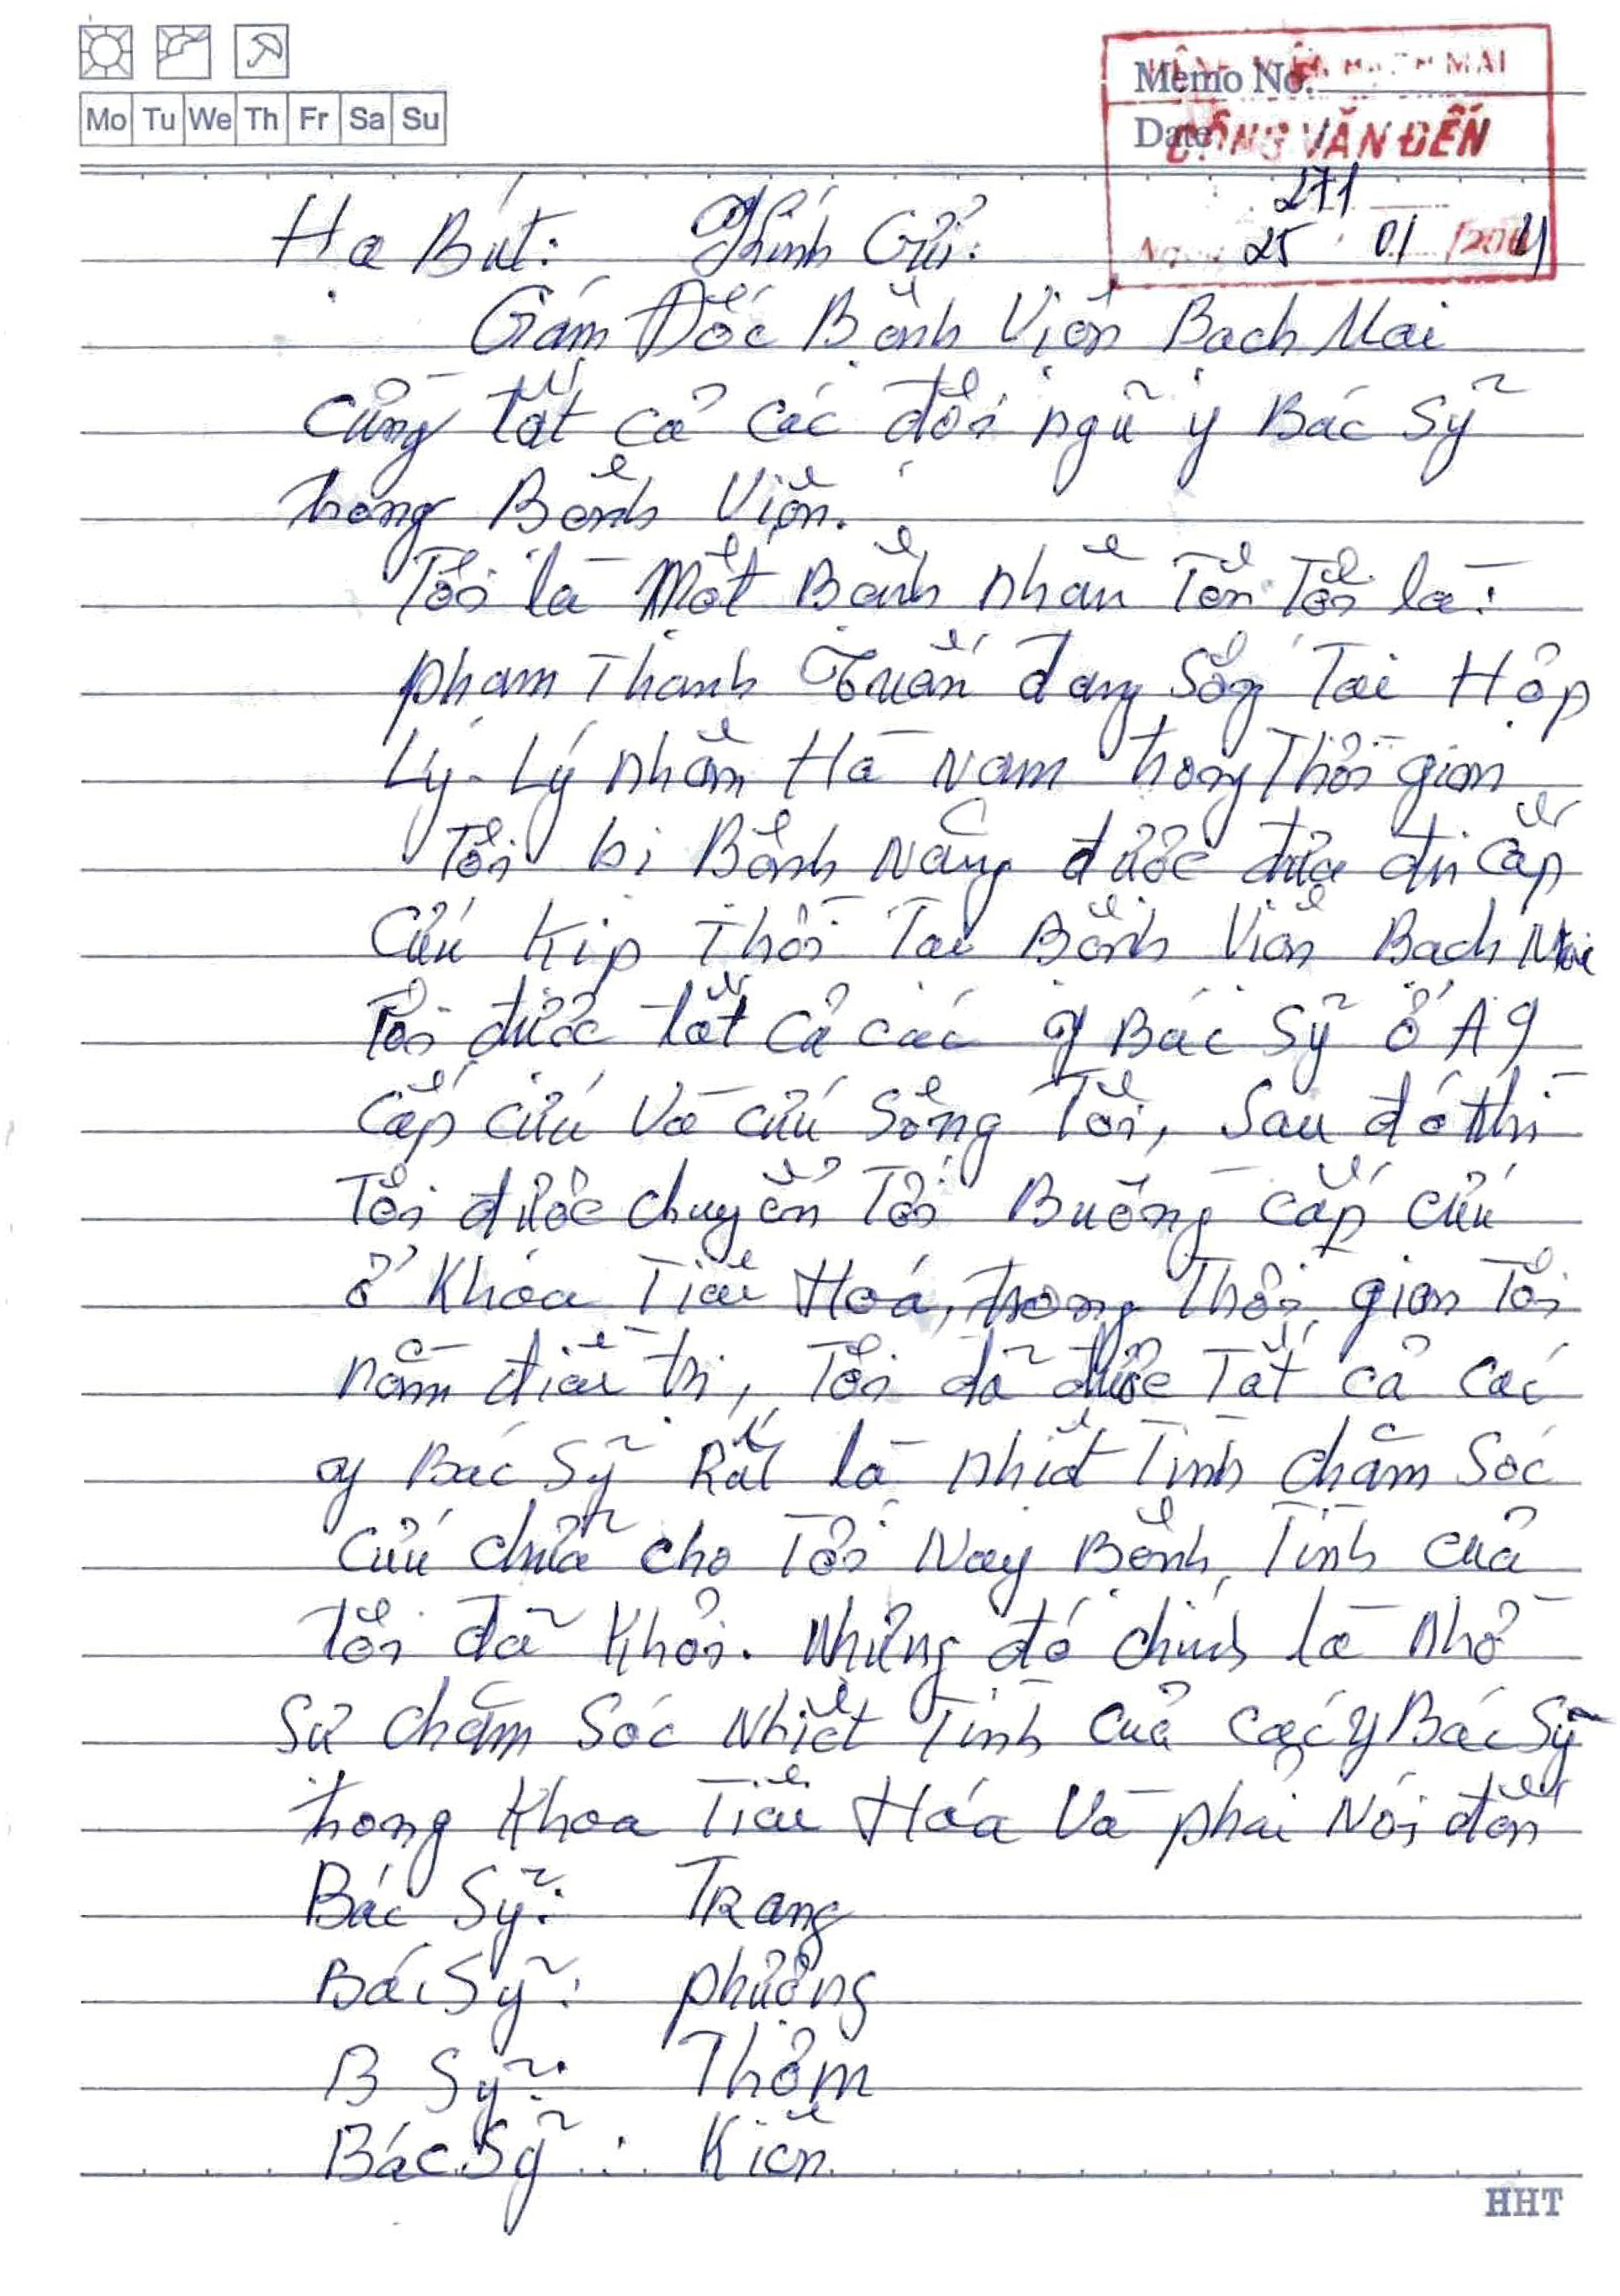 Mo Tu We Th Fr Sa Su
Memo No.
BẠCH MAI
Date
CÔNG VĂN ĐẾN
271
25 01 /20
Hạ Bút: Kính Gửi:
Gám Đốc Bệnh Viện Bạch Mai
Cùng tất cả các đội ngũ y Bác Sỹ
trong Bệnh Viện.
Tôi là Một Bệnh nhân Tên Tôi là:
phạm Thanh Tuấn đang Sống Tại Hợp
Lý - Lý nhân Hà Nam trong Thời gian
Tôi bị Bệnh Nặng được đưa đi Cấp
Cứu Kịp Thời Tại Bệnh Viện Bạch Mai
Tôi được tất cả các y Bác Sỹ ở A9
Cấp cứu Và cứu Sống Tôi, Sau đó thì
Tôi được chuyển Tới Buồng cấp cứu
ở Khóa Tiêu Hoá, trong Thời gian Tôi
nằm điều trị, Tôi đã được Tất cả Các
y Bác Sỹ Rất là nhiệt Tình chăm Sóc
Cứu chữa cho Tôi Nay Bệnh Tình của
tôi đã Khỏi. Những đó chính là nhờ
Sự chăm Sóc Nhiệt Tình của các y Bác Sỹ
trong Khoa Tiêu Hóa Và phải Nói đến
Bác Sỹ: TRang
Bác Sỹ: phượng
B Sỹ: Thơm
Bác Sỹ: Kiên
HHT